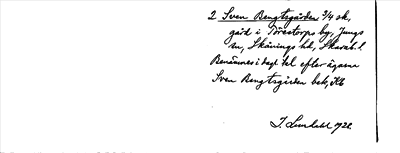 2 Sven Bengtsgården 3/4 sk,
gård i Törestorps by, Jungs
sn, Skånings hd, Skarab. l
Benämnes i dagl tal efter ägaren
Sven Bengtsgården beb, Kb
I. Lundahl 1922